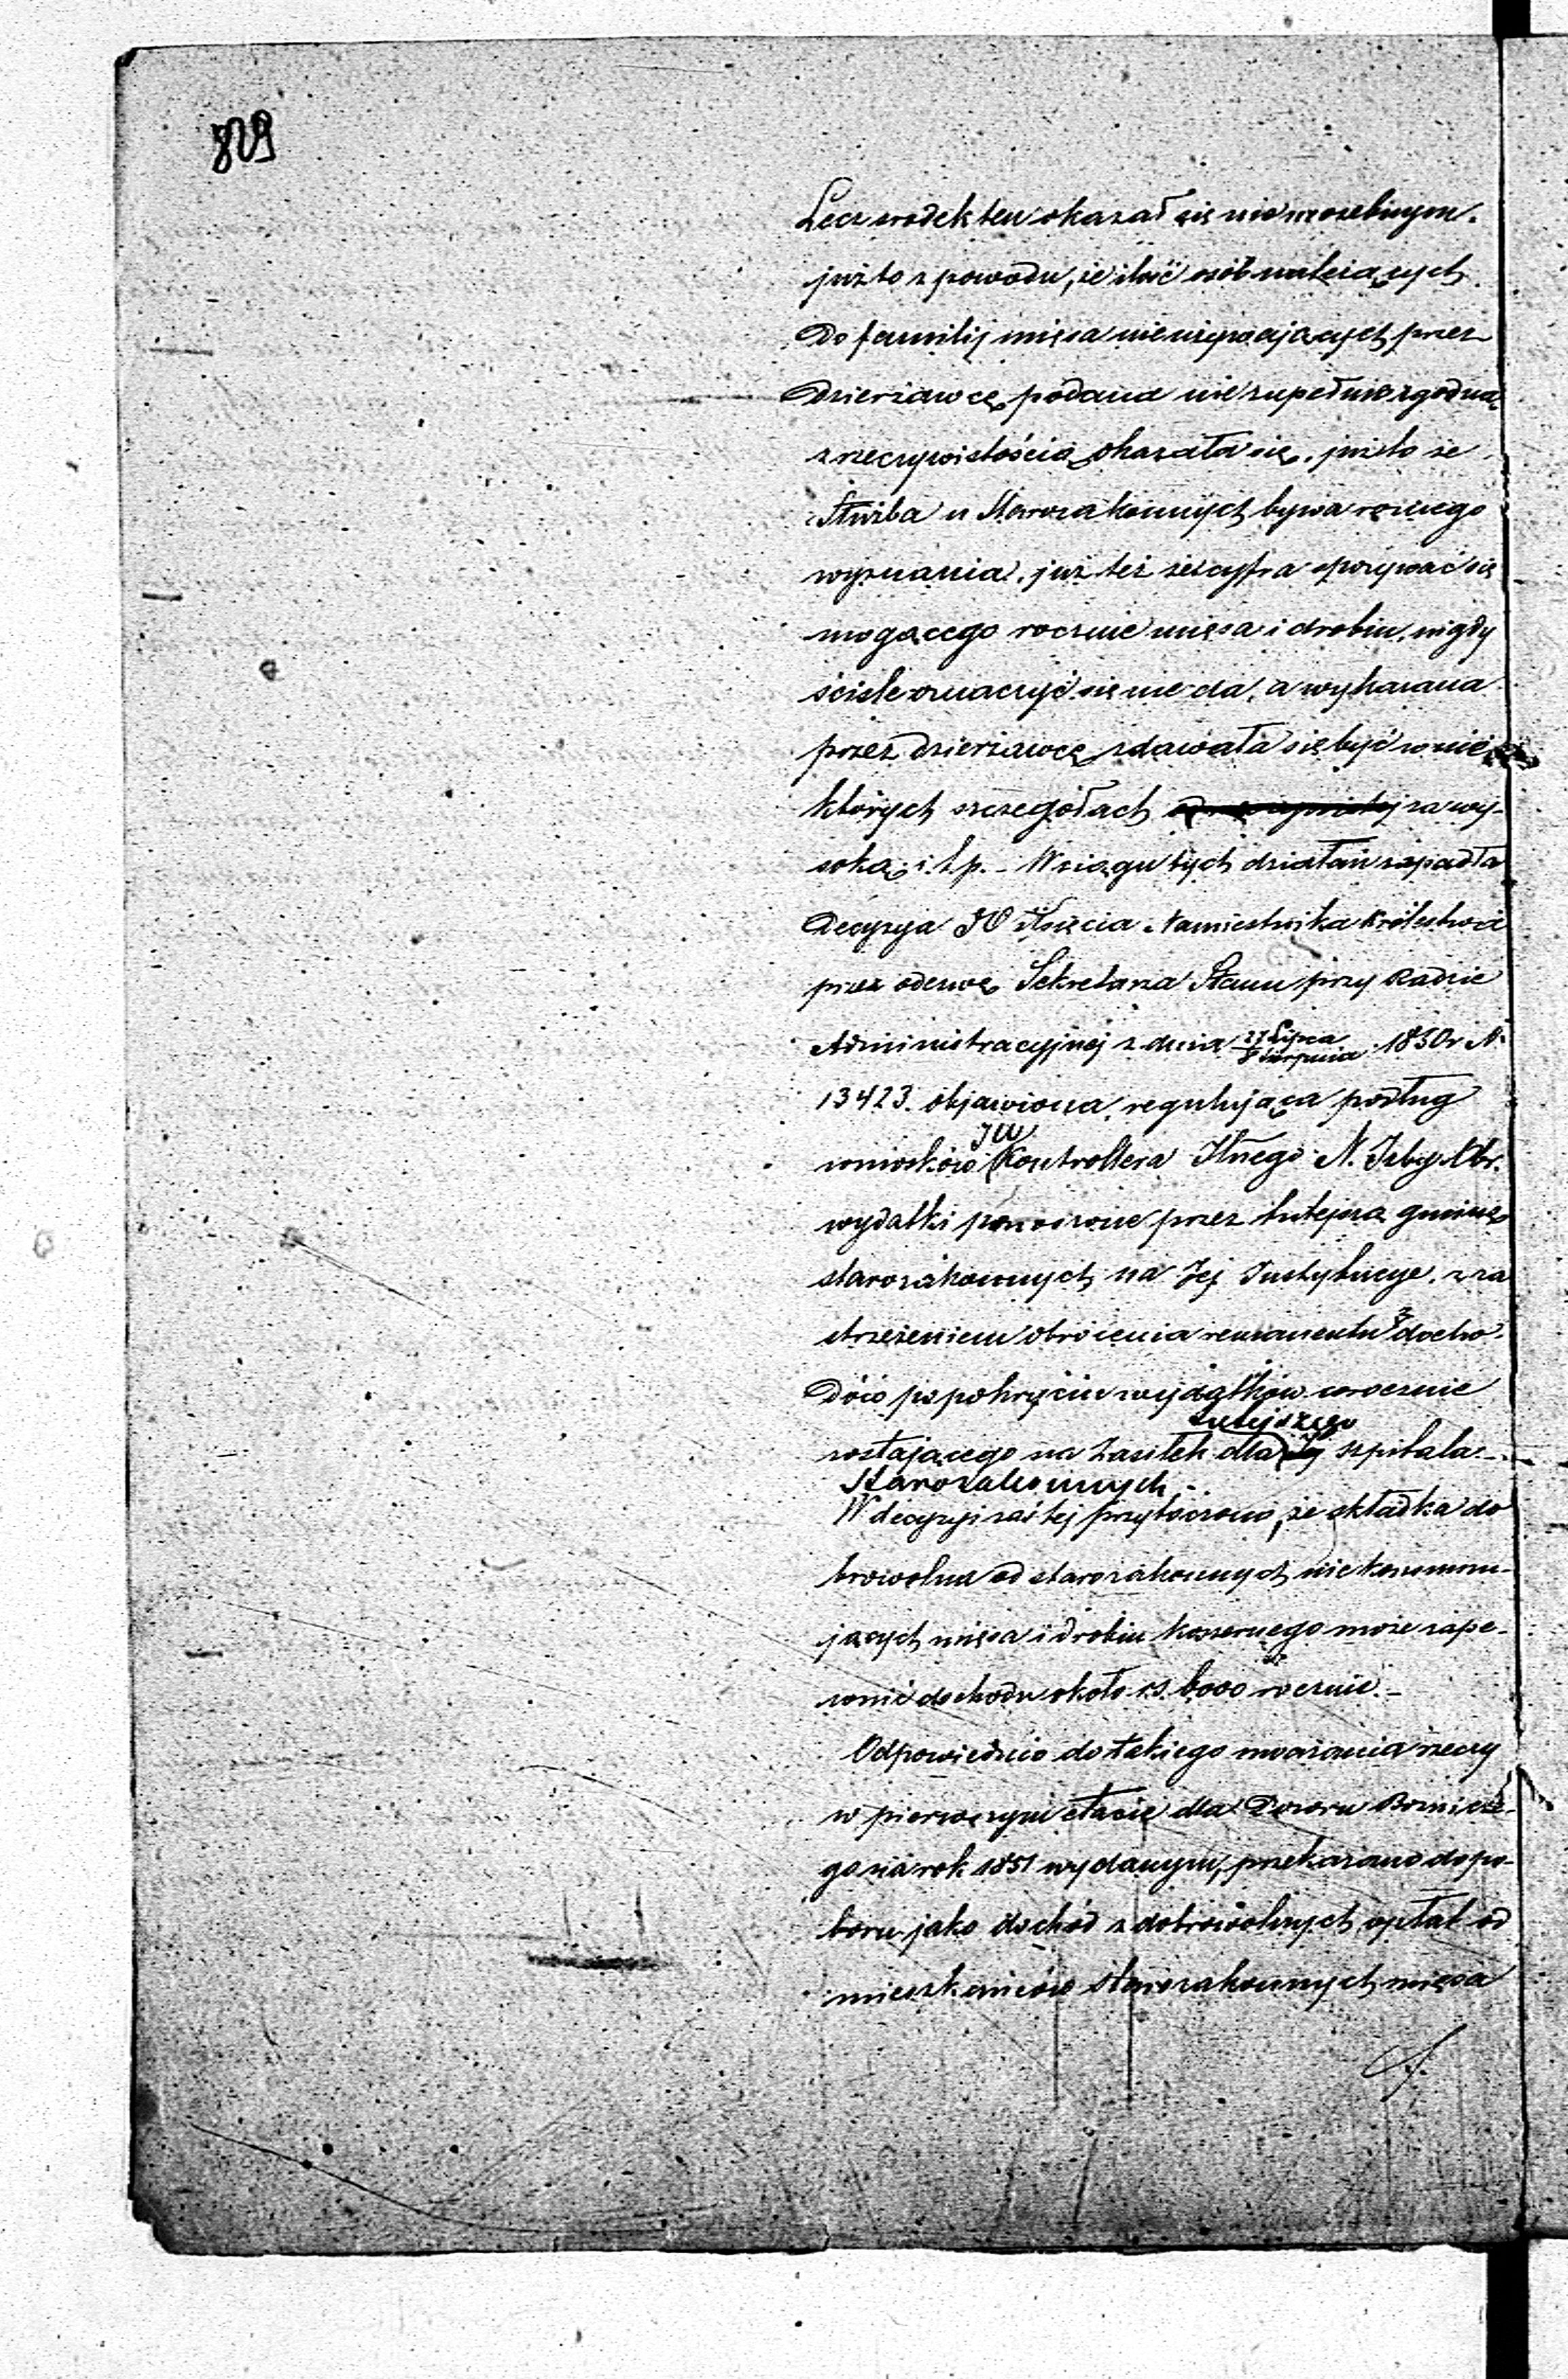 809
Lecz środek ten okazał się niemożebnym.
już to z powodu, że ilość osób należących
do familij mięsa nieużywających przez
Dzierżawcę podana nie zupełnie zgodną
z rzeczywistością okazała się, już to że
Służba u Starozakonnych bywa roznego
wyznania, już też że cyfra spożywać się
mogącego rocznie mięsa i drobiu, nigdy
ściśle oznaczyć się nie da, a wykazana
przez dzierżawcę zdawała się być w nie
których szczegółach za wy-
soką i. t. p. - W ciągu tych działań zapadła
Decyzya JO Księcia Namiestnika Królestwa
przez odezwę Sekretarza Stanu przy Radzie
Administracyjnej z dnia 27 Lipca / 8 Sierpnia 1850 r N.
13423. objawiona, regulująca podług
JW
wniosków Kontrollera Jlnego N. Izby Obr.
wydatki ponoszone przez tutejszą gminę
starozakonnych na Jej Instytucye, z za
strzeżeniem obrócenia remanentu z docho-
dów po pokryciu wydatków corocznie
tutejszego
zostającego na zasiłek dla Jej szpitala.-
Starozakonnych.-
W decyzyi zaś tej przytoczono, że składka do
browolna od starozakonnych nie konsummu-
jących mięsa i drobiu koszernego może zape-
wnić dochodu około rs. 6000 rocznie.-
Odpowiednio do takiego uważania rzeczy
w pierwszym etacie dla Dozoru Boznicze-
go na rok 1851 wydanym, przekazano do po-
boru jako dochód z dobrowolnych opłat od
mieszkańców Starozakonnych mięsa